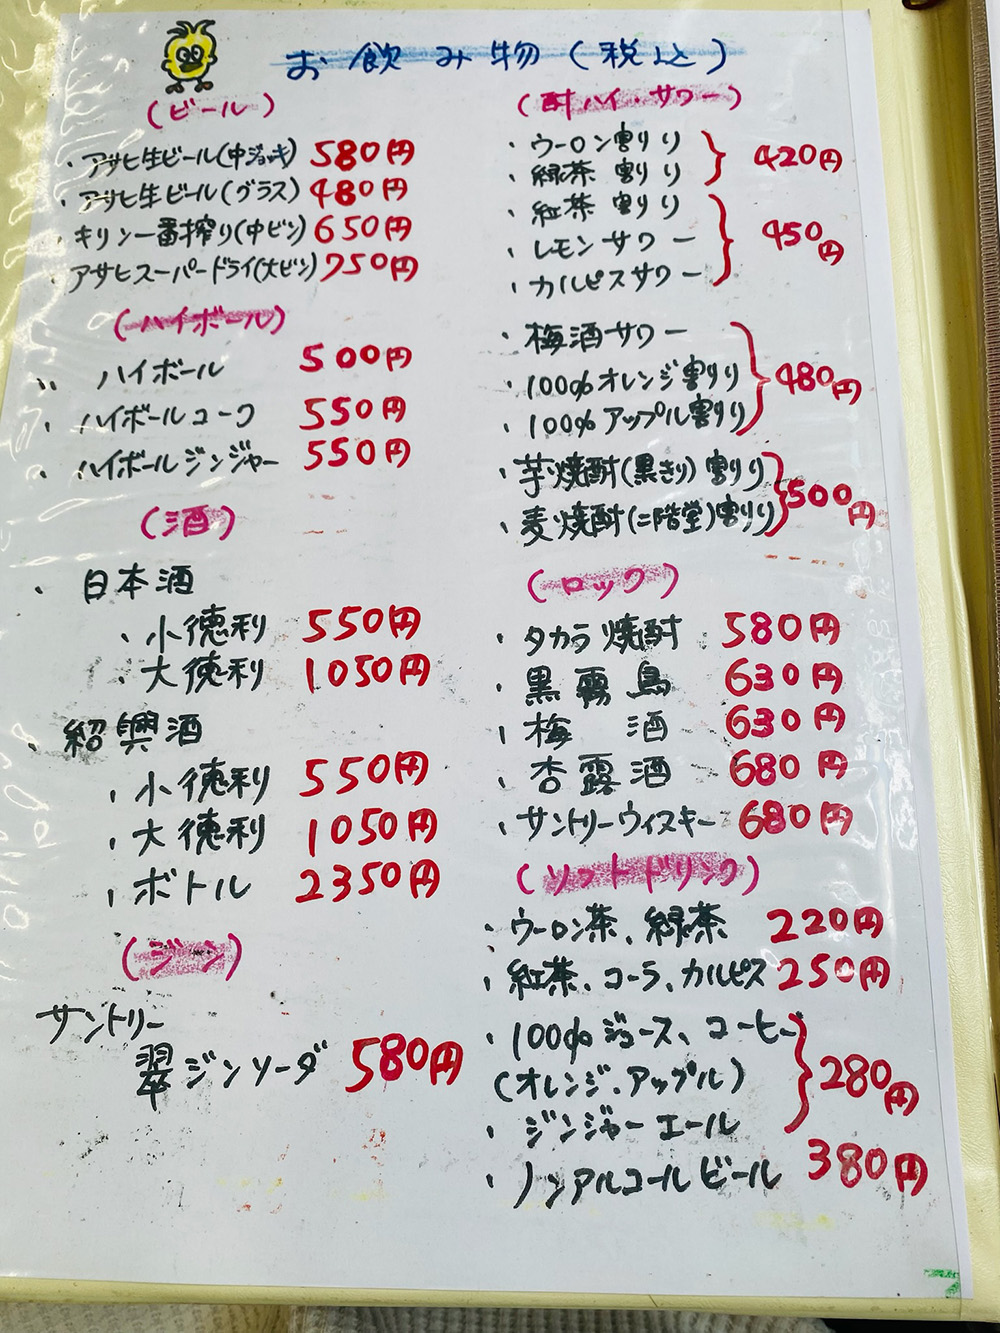 お飲み物(税込)
(ビール)
・アサヒ生ビール(中ジョッキ) 580円
・アサヒ生ビール(グラス) 480円
・キリン一番搾り(中ビン) 650円
・アサヒスーパードライ(大ビン) 750円
(ハイボール)
・ハイボール 500円
・ハイボールコーク 550円
・ハイボールジンジャー 550円
(酒)
・日本酒
・小徳利 550円
・大徳利 1050円
・紹興酒
・小徳利 550円
・大徳利 1050円
・ボトル 2350円
(ジン)
サントリー
翠ジンソーダ 580円
(酎ハイ・サワー)
・ウーロン割り
・緑茶割り
420円
・紅茶割り
・レモンサワー
・カルピスサワー
450円
・梅酒サワー
・100%オレンジ割り
・100%アップル割り
480円
・芋焼酎(黒きり)割り
・麦焼酎(二階堂)割り
500円
(ロック)
・タカラ焼酎 580円
・黒霧島 630円
・梅酒 630円
・杏露酒 680円
・サントリーウィスキー 680円
(ソフトドリンク)
・ウーロン茶、緑茶 220円
・紅茶、コーラ、カルピス 250円
・100%ジュース、コーヒー
(オレンジ、アップル)
・ジンジャーエール
280円
・ノンアルコールビール 380円